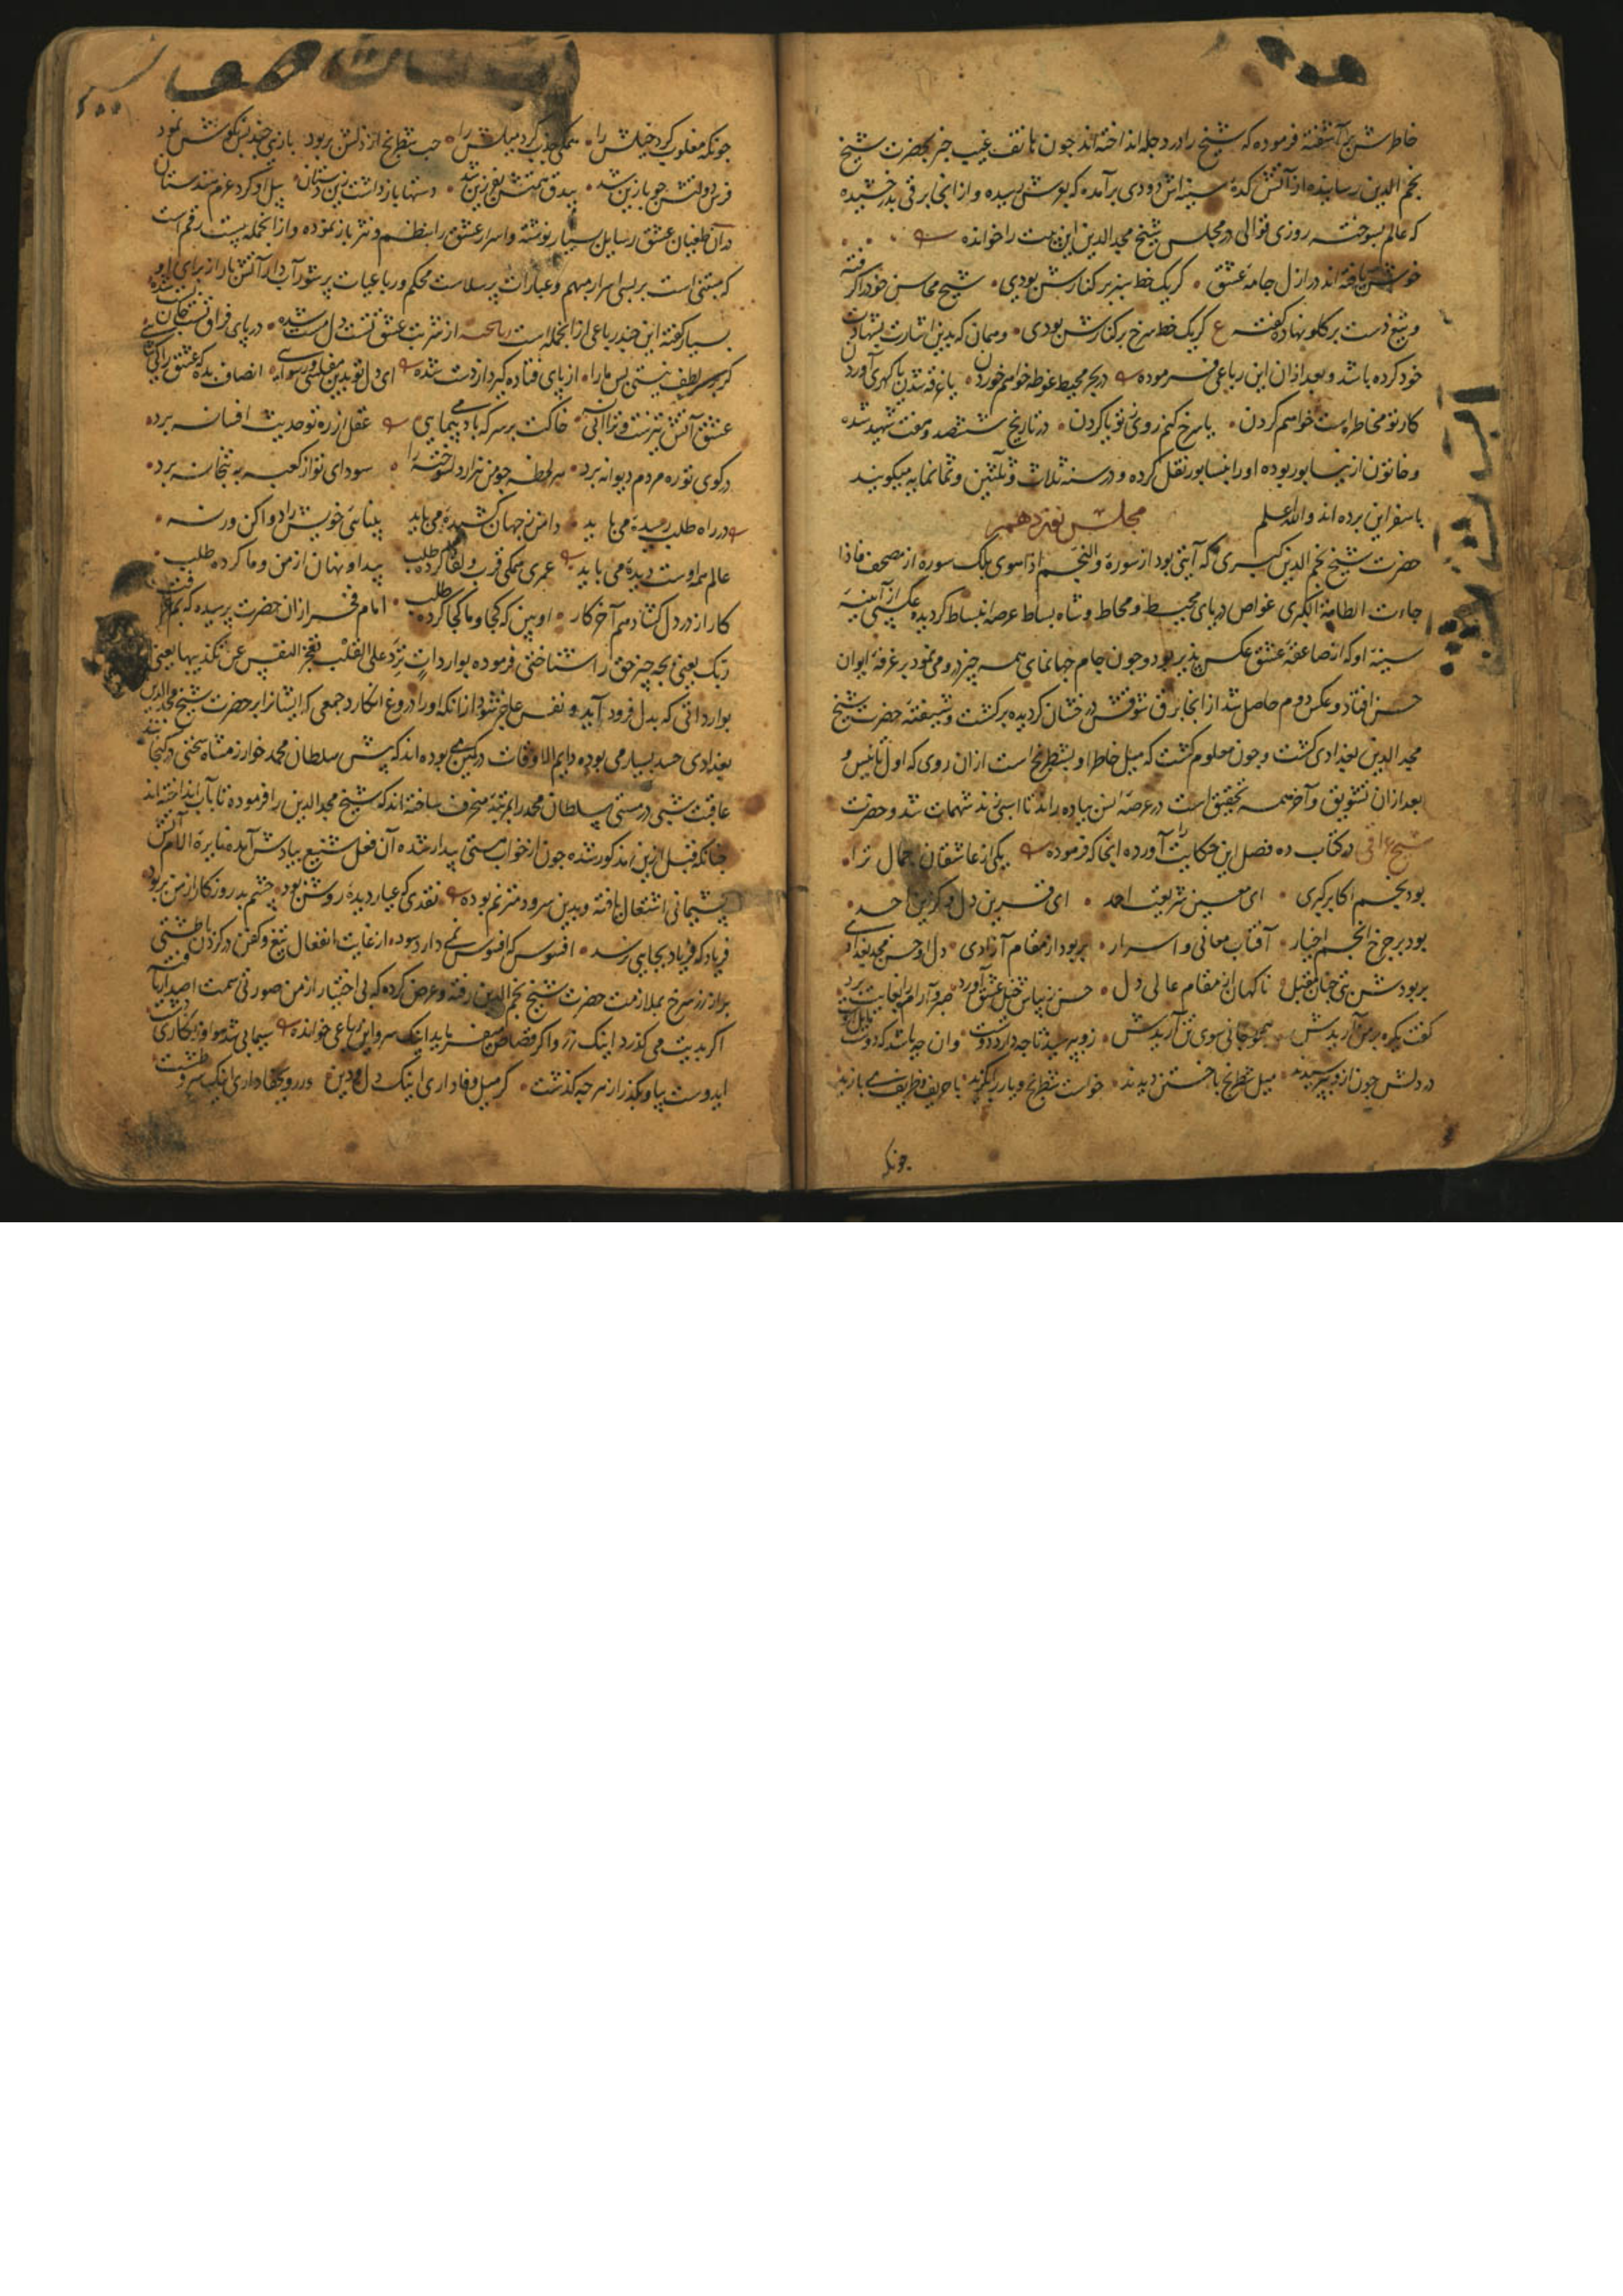 خاطرش برآشفته فرموده که شیخ را در دجله انداخته‌اند چون هاتف غیب خبر بحضرت شیخ
نجم الدین رسانیده از آتش کده سینه‌اش دودی برآمده که بوش رسیده و از انجا برقی بدرخشیده
که عالم بسوخته روزی قوالی در مجلس شیخ مجد الدین این بیت را خوانده
خوش بافته‌اند در ازل جامه عشق کر یک خط سبز بر کنارش بودی شیخ محاسن خود را کرفته
و تیغ دست بر کلو نهاده کفته ع کر یک خط سرخ بر کنارش بودی و همان که بدین اشارت بشهادت
خود کرده باشد و بعد ازان این رباعی فرموده در بحر محیط غوطه خواهم خوردن یا غرقه شدن یا کهری آوردن
کار تو مخاطره است خواهم کردن یا سرخ کنم روی ز تو یا کردن در تاریخ ششصد و هفت شهید شده
و خاتون از نیشابور بوده او را بنشابور نقل کرده و در سنه ثلاث و ثلثین و ثمانمایه میکویند
باسفراین برده اند و الله اعلم
مجلس نوزدهم
حضرت شیخ نجم الدین کبری که آیتی بود از سوره والنجم اذا هوی بلک سوره از مصحف فاذا
جاءت الطامة الکبری غواص دریای محیط و محاط و شاه بساط عرصه انبساط کردیده عکسی از آینه
سینه او که از صاعقه عشق عکس پذیر بود و چون جام جهانمای همه چیز درو می نمود بر غرفه ایوان
حسن افتاد و عکس دوم حاصل شد از انجا برق شوقش درفشان کردیده برکشت و شیفته حضرت شیخ
مجد الدین بغدادی کشت و چون معلوم کشت که میل خاطر او بشطرنج است ازان روی که اول تانیس و
بعد ازان تشویق و آخر همه تحقیق است در عرصه پیاده راند تا اسبی زند شهمات شد و حضرت
شیخ عراقی در کتاب ده فصل این حکایت را آورده انجا که فرموده یکی از عاشقان جمال ترا
بود نجم اکابر کبری ای معین شریعت احمد ای قرین دل و کزین احد
بود بر چرخ انجم اخیار آفتاب معانی و اسرار بربود از مقام آزادی دل او حسن مجد بغدادی
بربودش بتی چنان مقبل ناکهان از مقام عالی دل حسن زیباش خیل عشق آورد صبر و آرام را بغایت برد
کفت یکره بر من آریدش همچو جانی سوی تن آریدش زو بپرسید تا چه دارد دوست وان چه باشد که دوست مایل اوست
در دلش چون ازو بپرسیدند میل شطرنج باختن دیدند خواست شطرنج و یار برکزید با حریف ظریف می بازید
چونکه
چونکه مغلوب کرد خیلش را همکی جذب کرد میلش را حب شطرنج از دلش بربود بازی چند بس نکوش نمود
فرس دولتش چو بازین شد بیدق همتش بفرزین شد دستها باز داشت زین دستان پیل او کرد عزم هندستان
در آن طغیان عشق رسایل بسیار نوشته و اسرار عشق را بنظم و نثر باز نموده و از انجمله بیست رقم است
که مبتنی است بر بسی اسرار مبهم و عبارات پر سلاست محکم و رباعیات پرشور آبدار آتش بار از برای او
بسیار کفته این چند رباعی از انجمله است رباعیه از شربت عشق تست دل مست شده در پای فراق تست جان پست شده
کر بر لطف نیستی بس مارا از پای فتاده کیر و از دست شده ای دل تو بدین مفلسی و رسوایی انصاف بده که عشق را کی شایی
عشق آتش تیزست و ترا آبی نه خاکت بر سر که باد می پیمایی عقل از ره تو حدیث افسانه برد
در کوی تو ره مردم دیوانه برد هر لحظه چو من هزار دل سوخته را سودای تو از کعبه به بتخانه برد
در راه طلب رسیده می باید دامن ز جهان کشیده می باید بینایی خویش را دوا کن ور نه
عالم همه اوست دیده می باید عمری همکی قرب و لقا کرد طلب پیدا و نهان از من و ما کرده طلب
کار از در دل کشاد هم آخر کار او بین که کجا و ما کجا کرده طلب امام فخر ازان حضرت پرسیده که بم عرفت
ربک یعنی بچه چیز حق را شناختی فرموده بواردات ترد علی القلب فتعجز النفس عن تکذیبها یعنی
بوارداتی که بدل فرود آید و نفس عاجز شود ازانکه او را دروغ انکارد جمعی که ایشانرا بر حضرت شیخ مجد الدین
بغدادی حسد بسیار می بوده دایم الاوقات در کمین می بوده اند که پیش سلطان محمد خوارزمشاه سخنی در کنجانند
عاقبت شبی در مستی سلطان محمد را بمرتبه منحرف ساخته اند که شیخ مجد الدین را فرموده تا بآب انداخته اند
چنانکه قبل ازین مذکور شده چون از خواب مستی بیدار شده آن فعل شنیع بیادش آمده نایره الام آتش
پشیمانی اشتعال یافته و بدین سرود مترنم بوده نقدی که عیار دیده روشن بود چشم بد روزکار از من بربود
فریاد که فریاد بجایی نرسد افسوس که افسوس نمی دارد سود از غایت انفعال تیغ و کفن در کردن و طشتی
پر از زر سرخ بملازمت حضرت شیخ نجم الدین رفته و عرض کرده که بی اختیار از من صورتی سمت اصدار یافته
اکر بدیت می کذرد اینک زر و اکر قصاص می فرماید اینک سر و این رباعی خوانده
ایدوست بیا و بکذر از هر چه کذشت کر میل وفا داری اینک دل و دین ور روی جفا داری اینک سر و طشت